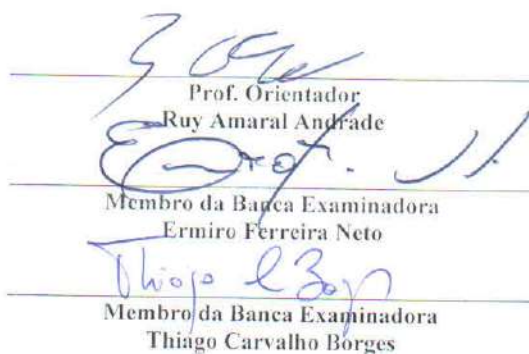 Prof. Orientador
Ruy Amaral Andrade
Membro da Banca Examinadora
Ermiro Ferreira Neto
Thiago C Borges
Membro da Banca Examinadora
Thiago Carvalho Borges